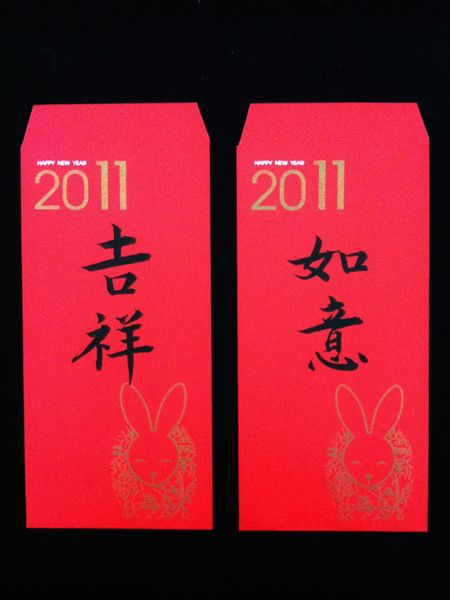 HAPPY NEW YEAR
2011
吉祥
HAPPY NEW YEAR
2011
如意